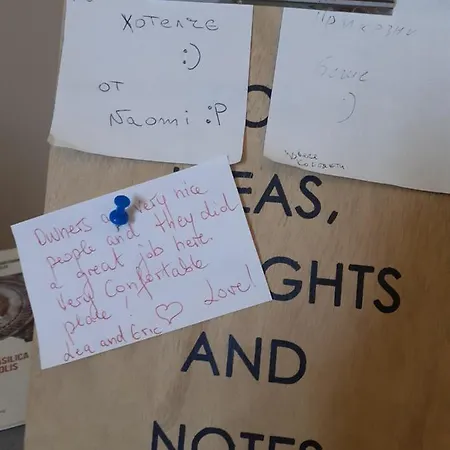 Хотелче
:)
от
Naomi :P
:)
EAS,
GHTS
AND
NOTES
Owners a very nice
people and they did
a great job here.
Very confortable
place!
Love!
Lea and Eric ♡